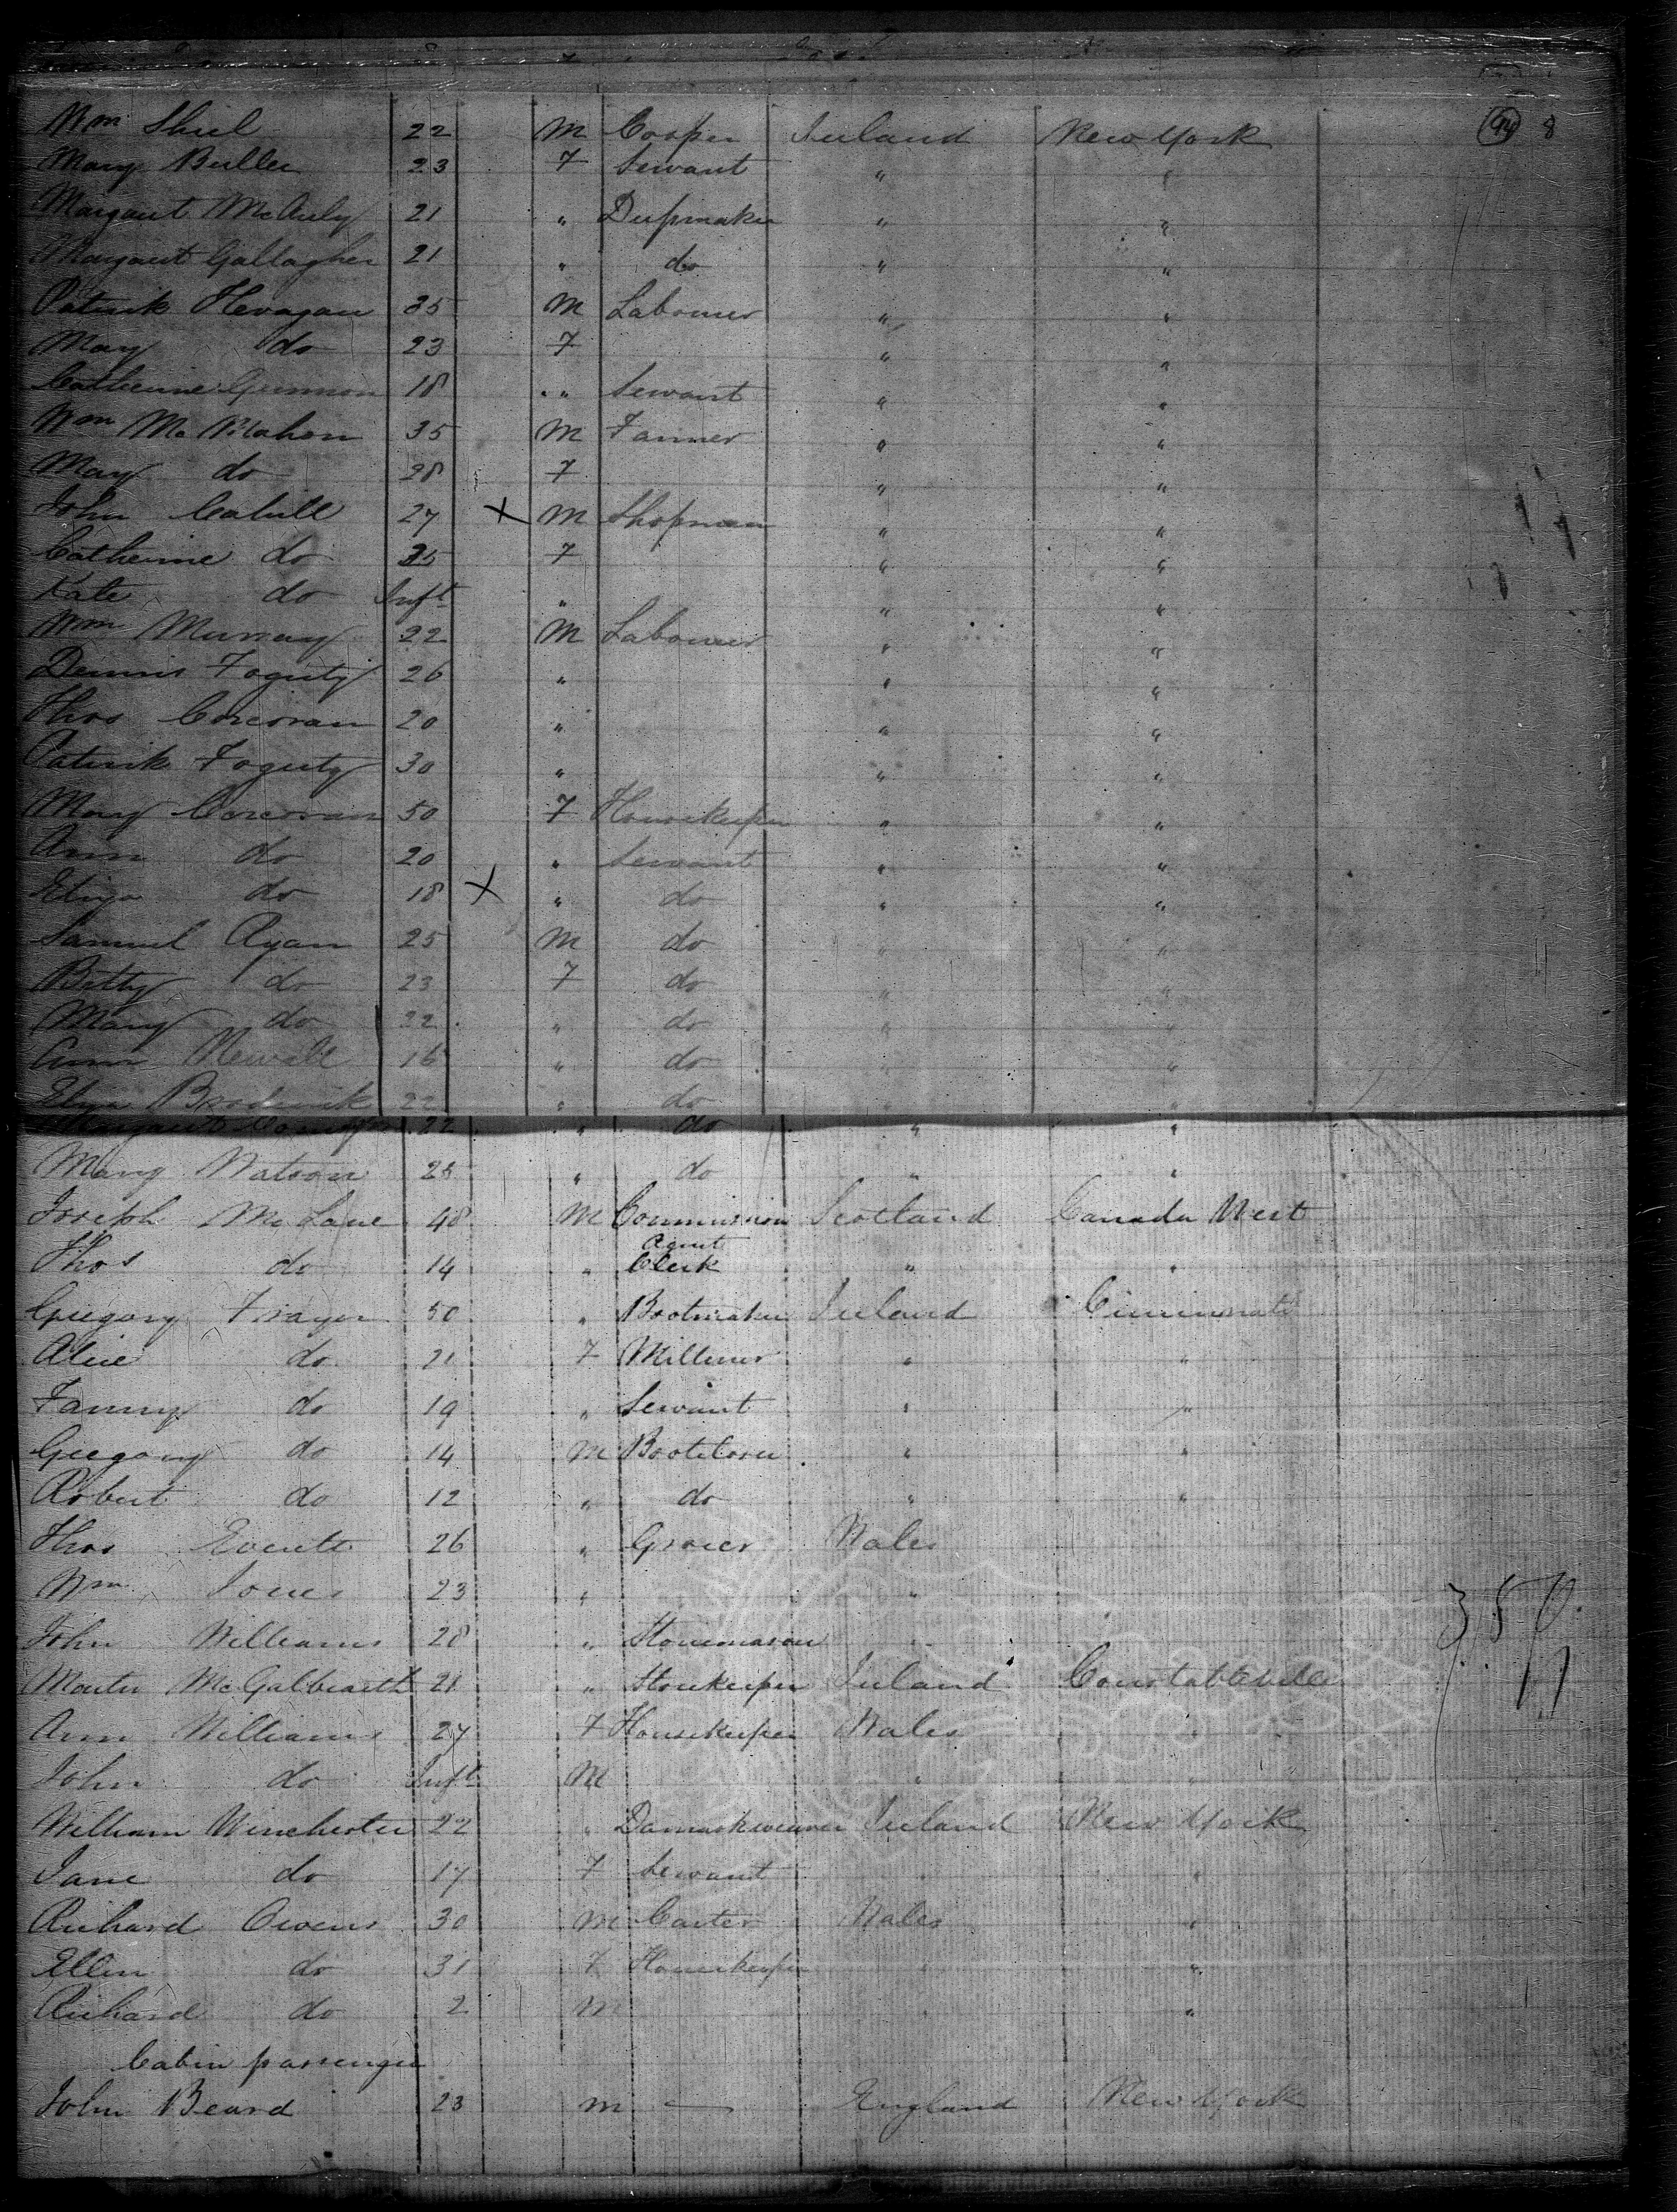 Wm Shiel 22 M Cooper Ireland New York 94 8
Mary Butler 23 F Servant " "
Margaret McAuly 21 " Dressmaker " "
Margaret Gallagher 21 " do " "
Patrick 35 M Labourer " "
Mary do 23 F " "
Catherine 18 " " Servant " "
Wm McMahon 35 M Farmer " "
Mary do 28 F " "
John Cahill 27 X M Shopman " "
Catherine do 25 F " "
Kate do Inft " " "
Wm Murray 22 M Labourer " "
Dennis Foguty 26 " " "
Thos Corcoran 20 " " "
Patrick Foguty 30 " " "
Mary Corcoran 50 F Housekeeper " "
Ann do 20 " Servant " "
Eliza do 18 X " do " "
Samuel Ryan 25 M do " "
Betty do 23 F do " "
Mary do 22 " do " "
Ann 16 " do " "
Eliza Broderick 22 " do " "
Margaret 22 " do " "
Mary Watson 25 " do " "
Joseph McLane 48 M Commission Scotland Canada West
Agent
Thos do 14 " Clerk " "
Gregory Frayer 50 " Bootmaker Ireland Cincinnati
Alice do 21 F Milliner " "
Fanny do 19 " Servant " "
Gregory do 14 M Bootcloser " "
Robert do 12 " do " "
Thos Everitt 26 " Grocer Wales
Wm Jones 23 " "
John Williams 28 " Stonemason "
McGalbraith 21 " Storekeeper Ireland Constableville
Ann Williams 27 F Housekeeper Wales "
John do Inft M " "
William Winchester 22 " Damaskweaver Ireland New York
Jane do 17 F Servant " "
Richard Owens 30 M Carter Wales "
Ellen do 31 F Housekeeper " "
Richard do 2 M " "
Cabin passenger
John Beard 23 M — England New York